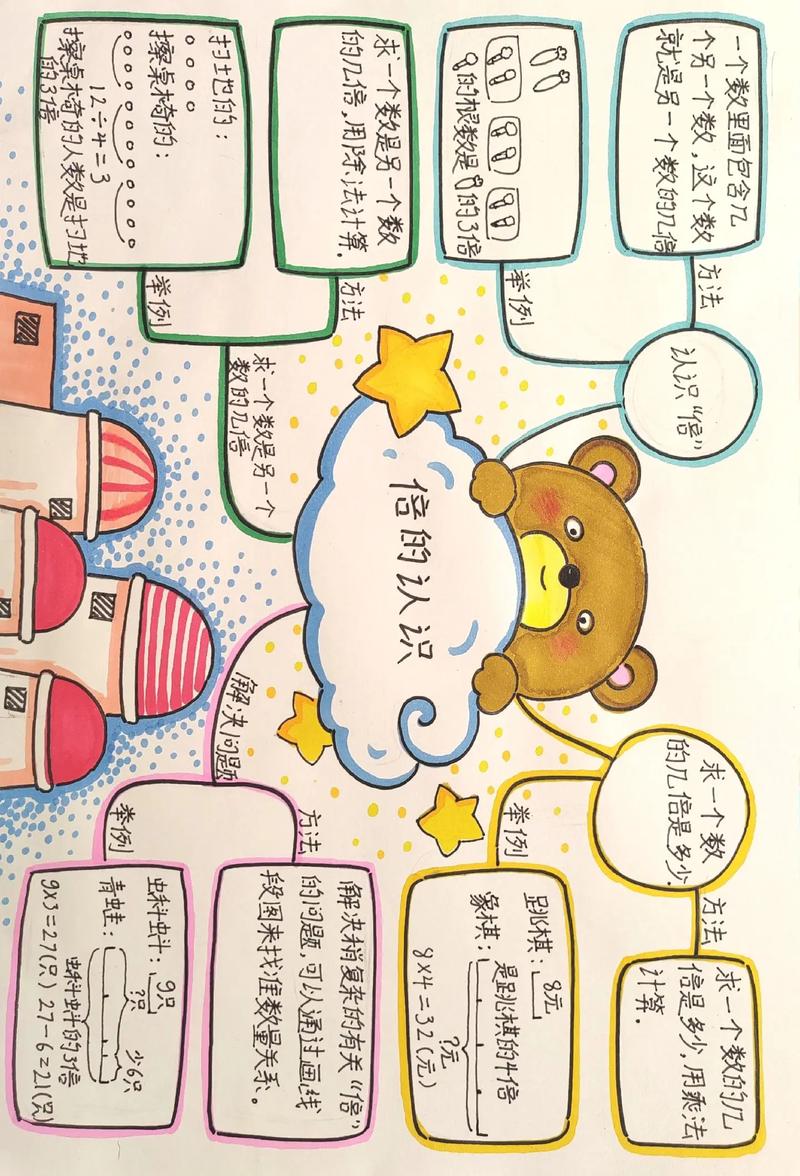 倍的认识
认识“倍”
方法
一个数里面包含几
个另一个数，这个数
就是另一个数的几倍
举例
的根数是
的3倍
求一个数是另一个
数的几倍
方法
求一个数是另一个数
的几倍，用除法计算。
举例
扫地的：
擦桌椅的：
12÷4=3
擦桌椅的人数是扫地
的3倍
求一个数
的几倍是多少
方法
求一个数的几
倍是多少，用乘法
计算。
举例
跳棋：
8元
是跳棋的4倍
象棋：
?元
8×4=32(元)
解决问题
方法
解决稍复杂的有关“倍”
的问题，可以通过画线
段图来找准数量关系。
举例
蝌蚪：
9只
?只
少6只
青蛙：
蝌蚪的3倍
9×3=27(只) 27-6=21(只)